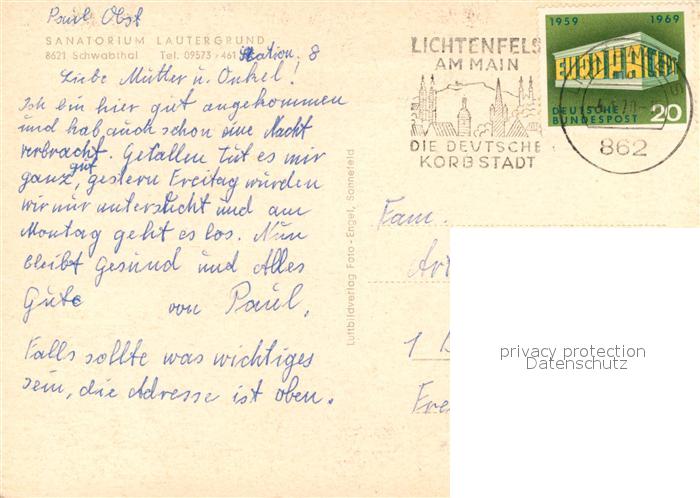 Paul Obst
SANATORIUM LAUTERGRUND
8621 Schwabthal Tel. 09573 - 461 Station. 8
Liebe Mutter u. Onkel!
Ich bin hier gut angekommen
und hab auch schon eine Nacht
verbracht. Gefallen tut es mir
ganz gut, gestern Freitag wurden
wir nur untersucht und am
Montag geht es los. Nun
bleibt Gesund und Alles
Gute von Paul,
Falls sollte was wichtiges
sein, die Adresse ist oben.
Luftbildverlag Foto-Engel, Sonnefeld
LICHTENFELS
AM MAIN
DIE DEUTSCHE
KORBSTADT
1959 1969
EUROPA CEPT
DEUTSCHE
BUNDESPOST 20
862
Fam.
1
privacy protection
Datenschutz